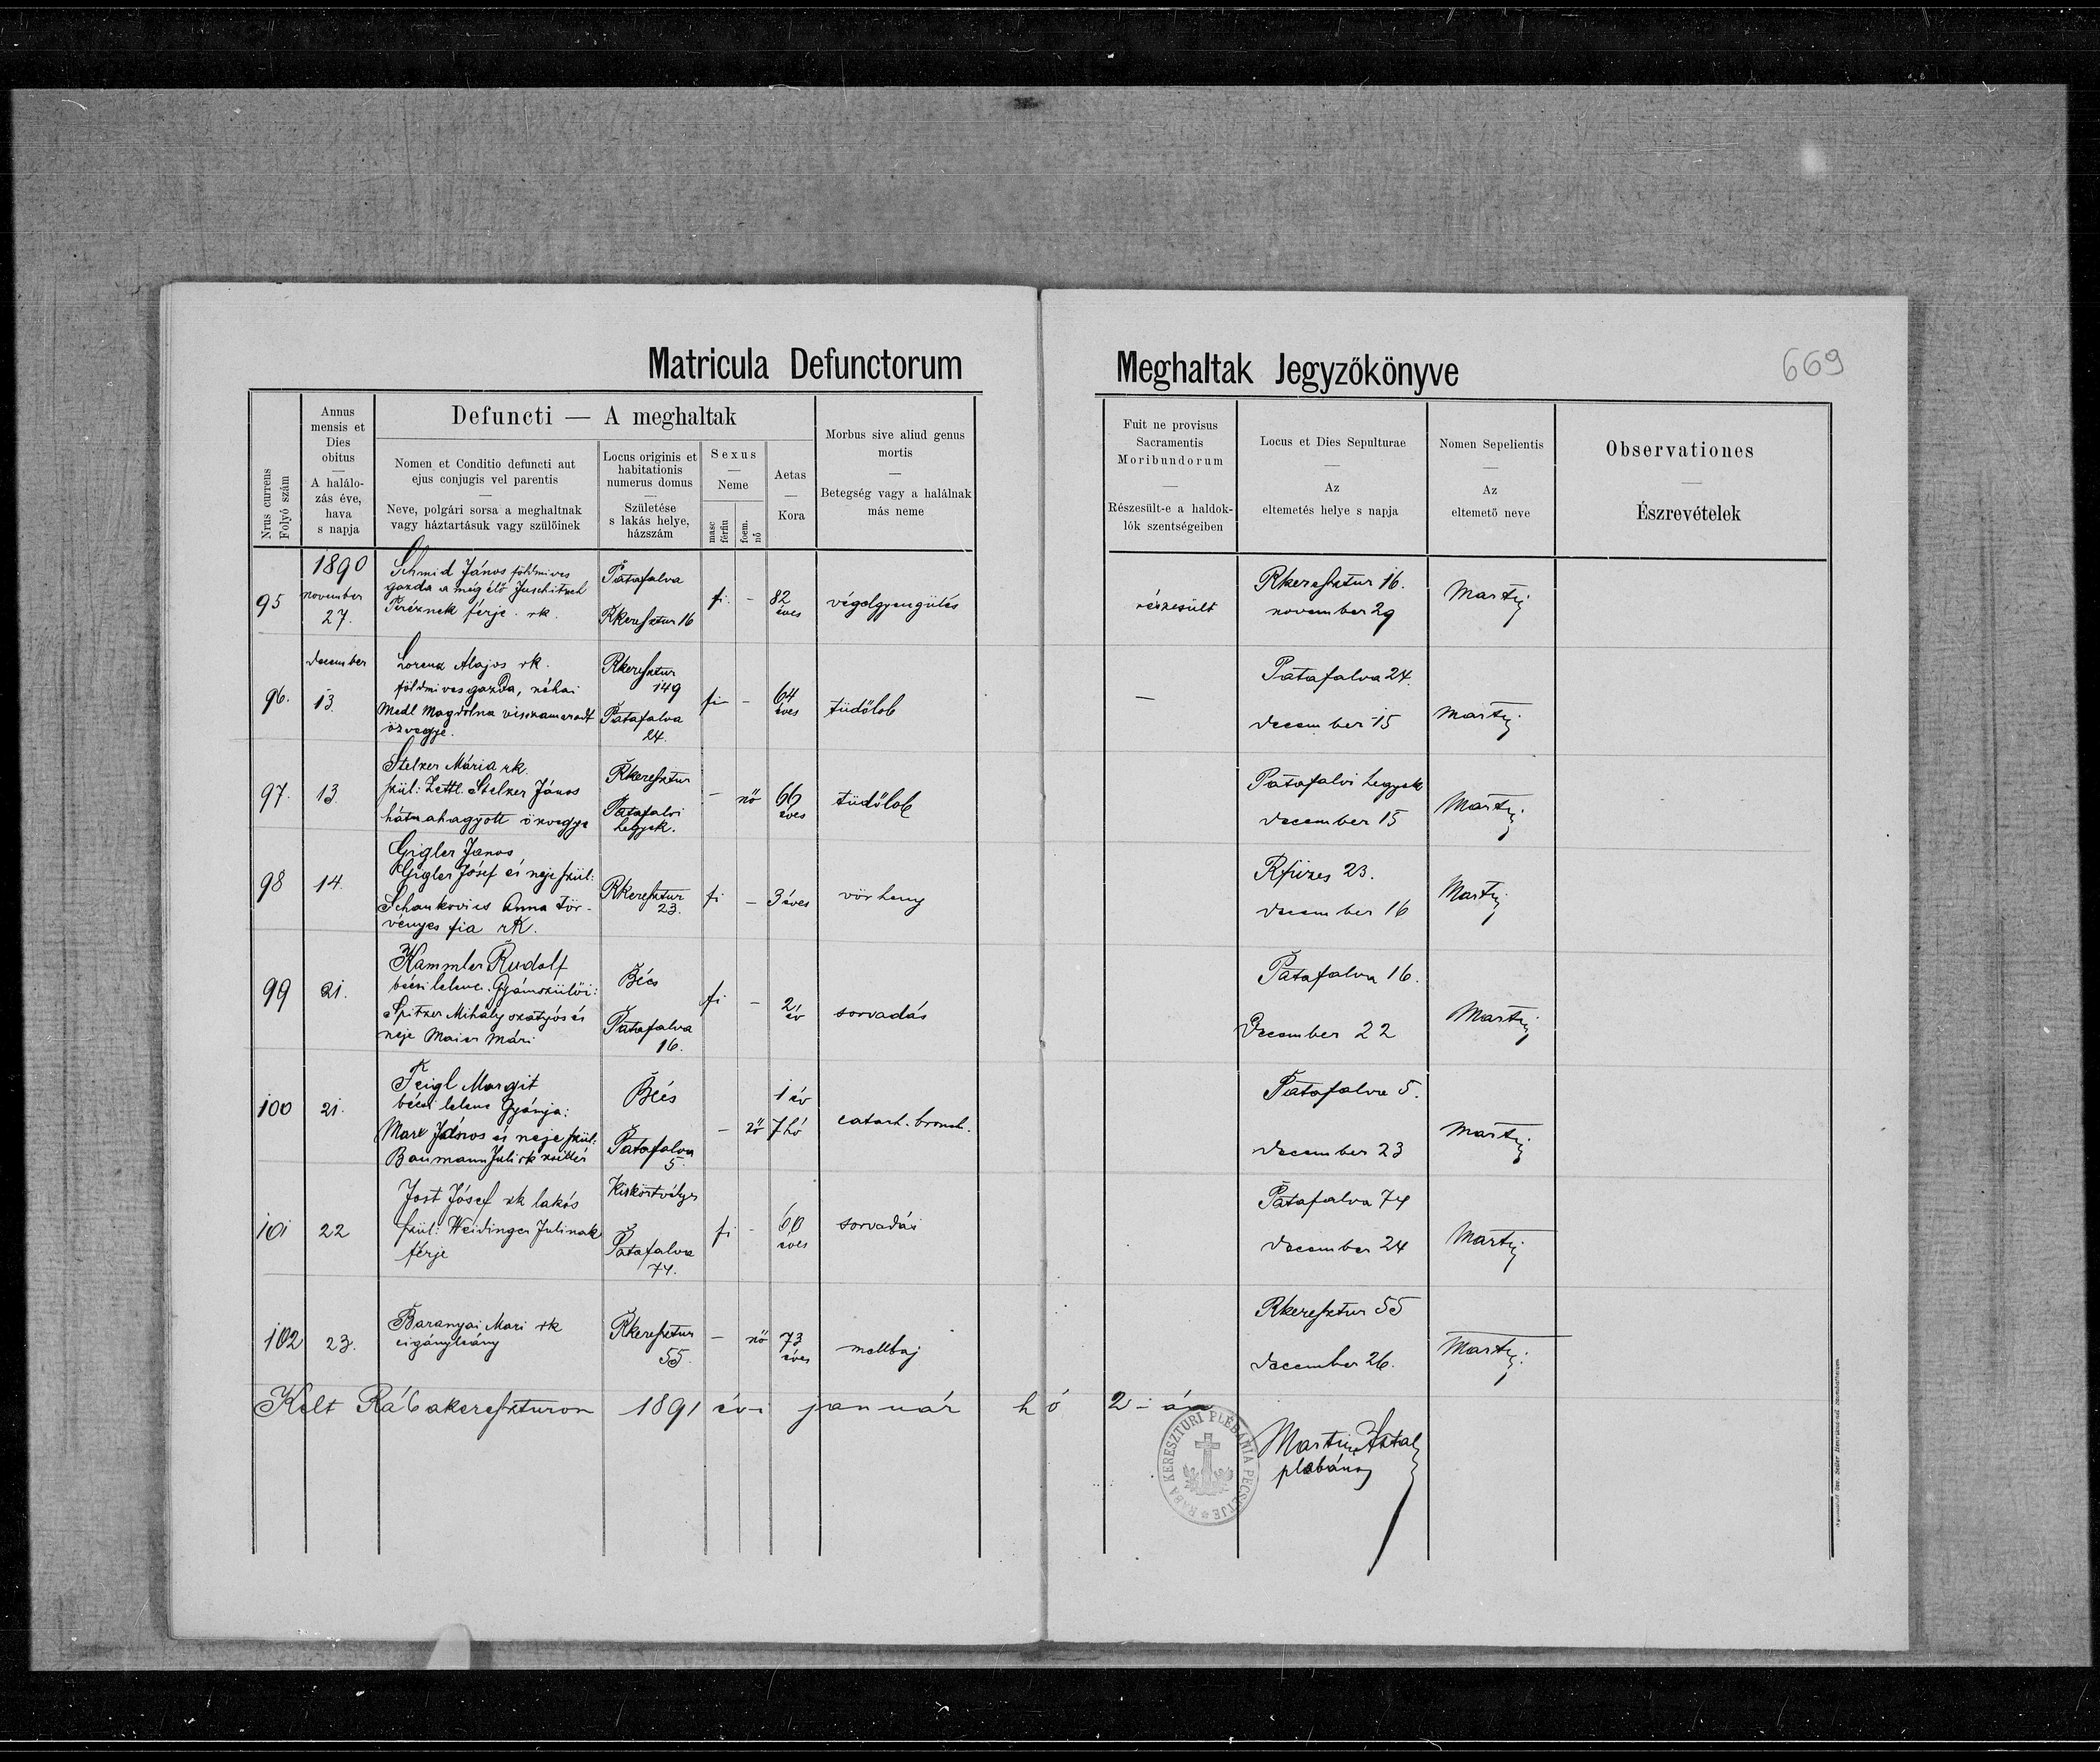 Matricula Defunctorum
Meghaltak Jegyzőkönyve
669
Nrus currens
Folyó szám
Annus
mensis et
Dies
obitus
—
A halálo-
zás éve,
hava
s napja
Defuncti — A meghaltak
Nomen et Conditio defuncti aut
ejus conjugis vel parentis
—
Neve, polgári sorsa a meghaltnak
vagy háztartásuk vagy szülőinek
Locus originis et
habitationis
numerus domus
—
Születése
s lakás helye,
házszám
Sexus
—
Neme
masc
férfiu
foem.
nő
Aetas
—
Kora
Morbus sive aliud genus
mortis
—
Betegség vagy a halálnak
más neme
Fuit ne provisus
Sacramentis
Moribundorum
—
Részesült-e a haldok-
lók szentségeiben
Locus et Dies Sepulturae
—
Az
eltemetés helye s napja
Nomen Sepelientis
—
Az
eltemető neve
Observationes
—
Észrevételek
95
1890
november
27.
Schmid János földmives
gazda a még élő Juschitzch
Teréznek férje. rk.
Patafalva
Rkeresztur 16
fi. -
82
éves
végelgyengülés
részesült
Rkeresztur 16.
november 29
Martiy
96.
december
13.
Lorenz Alajos rk.
földmives gazda, néhai
Medl Magdolna visszamaradt
özvegye.
Rkeresztur
149
Patafalva
24.
fi -
64
éves
tüdőlob
—
Patafalva 24.
december 15
Martiy
97.
13.
Stelzer Mária rk.
szül: Zettl. Stelzer János
hátrahagyott özvegye
Rkeresztur
Patafalvi
hegyek.
- nő
66
éves
tüdőlob
Patafalvi hegyek
december 15
Martiy
98
14.
Gigler Janos
Gigler Jósef és neje szül:
Schankovics Anna tör-
vényes fia rk.
Rkeresztur
23.
fi - 3 éves
vörheny
Rfüzes 23.
december 16
Martiy
99
21.
Hammler Rudolf
bécsi lelenc. Gyámszülői:
Spitzer Mihály szatyós és
neje Maier Mári
Bécs
Patafalva
16.
fi -
2
év
sorvadás
Patafalva 16.
December 22
Martiy
100
21.
Feigl Margit
bécsi lelenc Gyámja:
Marx János és neje szül:
Baumann Juli rk zsellér
Bécs
Patafalva
5.
- nő
1 év
7 hó
catarh. bronch.
Patafalva 5.
december 23
Martiy
101
22
Jost Jósef rk lakós
szül: Weidinger Julinak
férje
Kiskörtvélyes
Patafalva
74.
fi -
60
éves
sorvadás
Patafalva 74
december 24
Martiy
102
23.
Baranyai Mari rk
cigányleány
Rkeresztur
55.
- nő
73
éves
mellbaj
Rkeresztur 55
december 26.
Martiy
Kelt Rábakereszturon 1891 évi január hó 2-án
RÁBA KERESZTURI PLÉBÁNIA PECSÉTJE
plébános